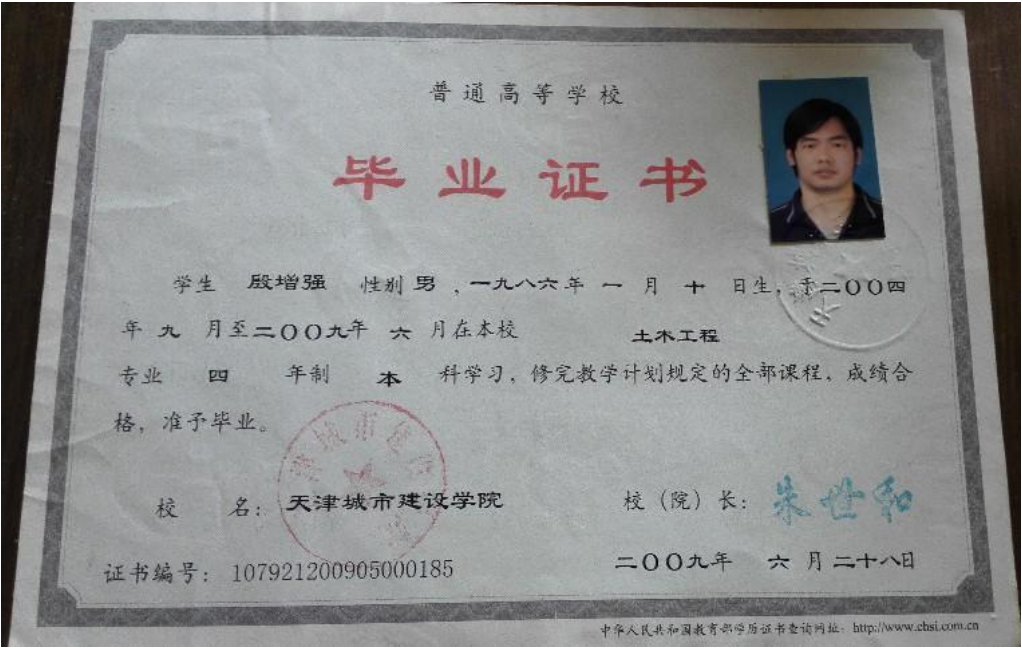 普通高等学校
毕业证书
学生 殷增强 性别 男 ,一九八六年 一 月 十 日生, 于二〇〇四
年 九 月至二〇〇九年 六 月在本校 土木工程
专业 四 年制 本 科学习, 修完教学计划规定的全部课程, 成绩合
格, 准予毕业。
校 名: 天津城市建设学院 校(院)长: 朱世和
证书编号: 107921200905000185 二〇〇九年 六 月 二十八日
中华人民共和国教育部学历证书查询网址: http://www.chsi.com.cn